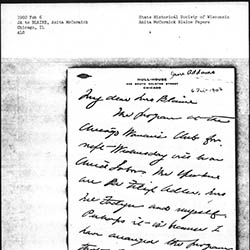 1902 Feb 6
JA to BLAINE, Anita McCormick
Chicago, IL
ALS
State Historical Society of Wisconsin
Anita McCormick Blaine Papers
Jane Addams
HULL-HOUSE
335 SOUTH HALSTED STREET
CHICAGO
My dear Mrs Blaine
The program at the
Chicago Woman's Club for
next Wednesday is to be on
Child Labor. The speakers
are Dr Felix Adler, Mrs
and myself.
Perhaps it is because I
have arranged the program